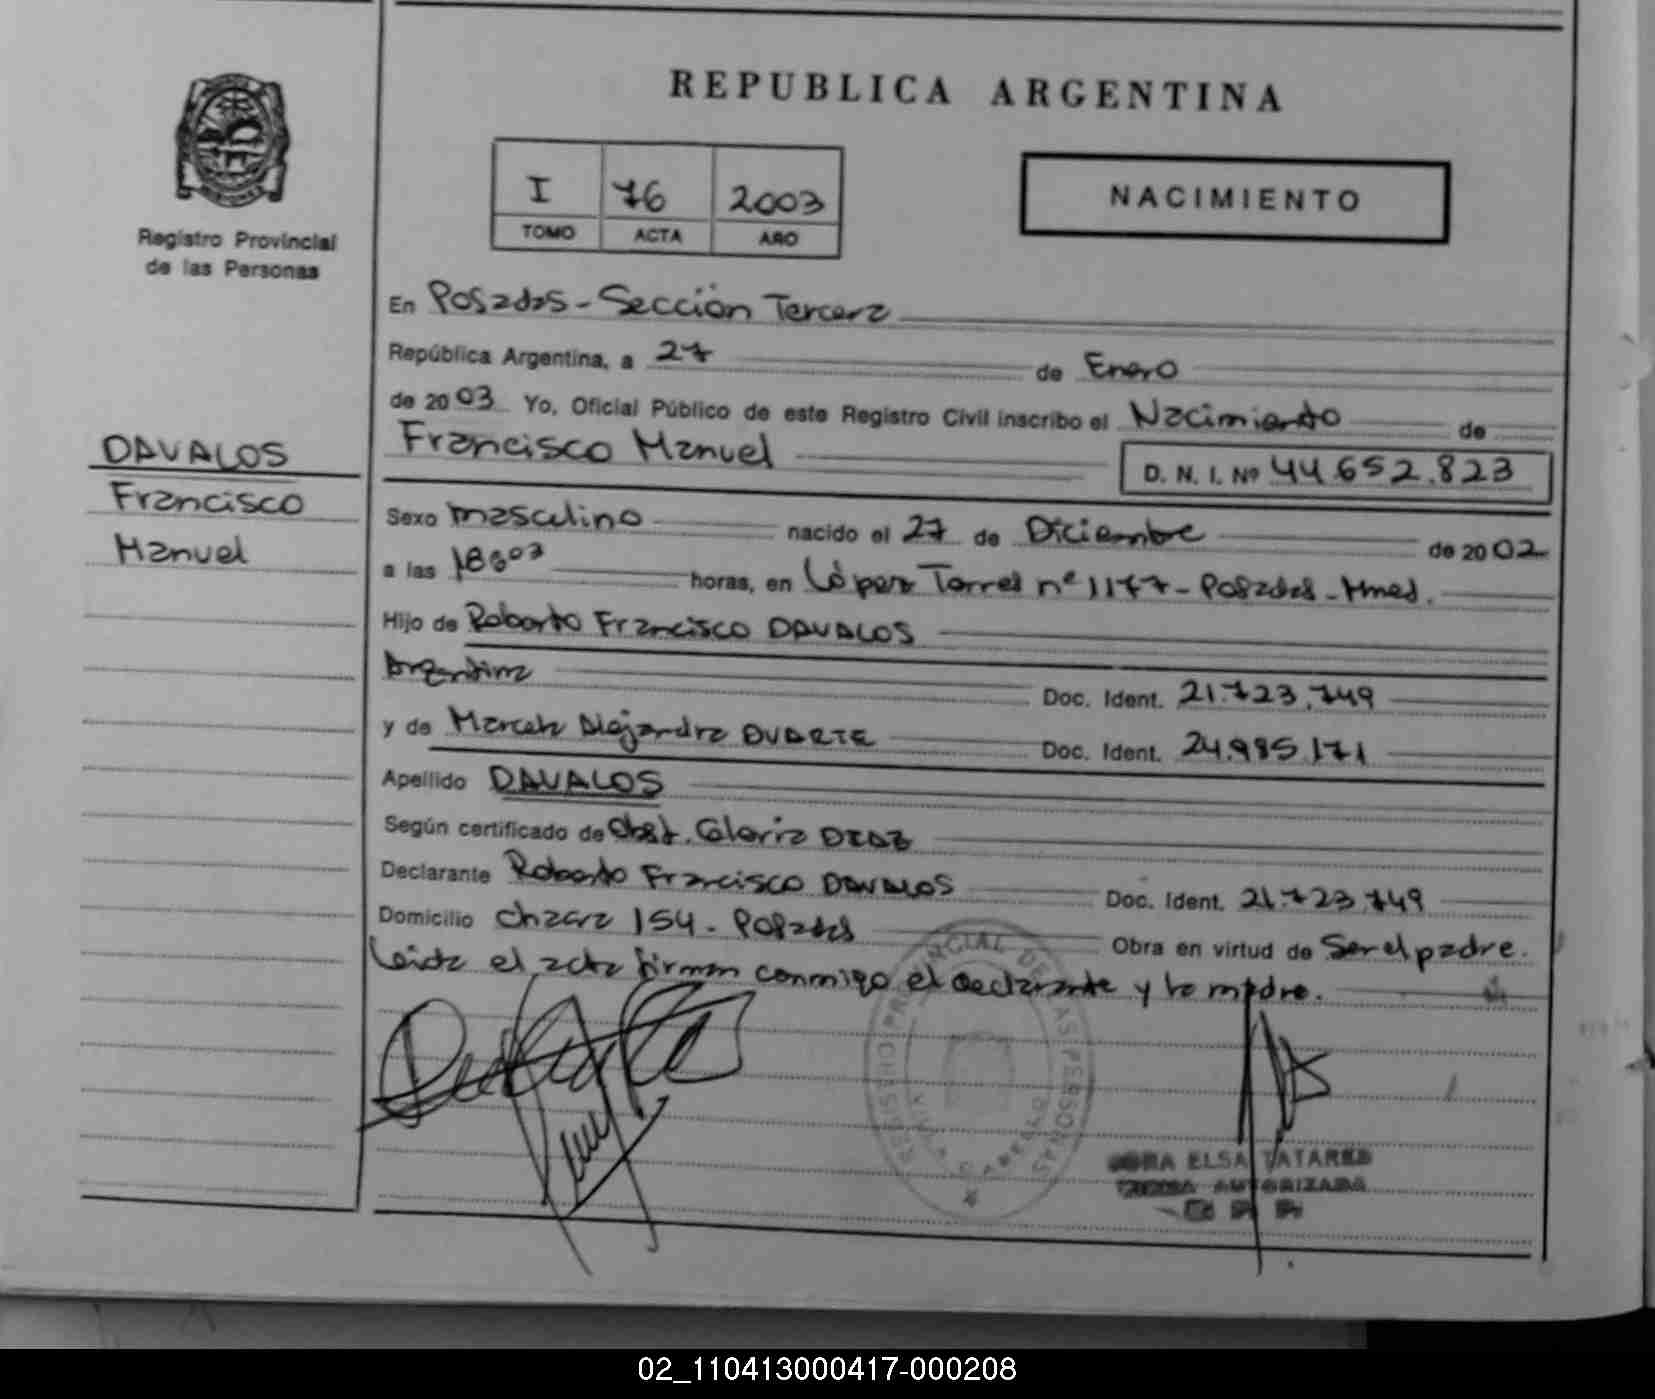 REPUBLICA ARGENTINA
I 76 2003
TOMO ACTA AÑO
NACIMIENTO
Registro Provincial
de las Personas
DAVALOS
Francisco
Manuel
En Posadas - Sección Tercera
República Argentina, a 27 de Enero
de 2003 Yo, Oficial Público de este Registro Civil inscribo el Nacimiento de
Francisco Manuel D. N. I. Nº 44.652.823
Sexo masculino nacido el 27 de Diciembre de 2002
a las horas, en López Torres nº 1177 - Posadas - Mnes.
Hijo de Roberto Francisco DAVALOS
Argentina Doc. Ident. 21.723.749
y de Marcela Alejandra DUARTE Doc. Ident. 24.985.171
Apellido DAVALOS
Según certificado de Obst. Gloria DIAZ
Declarante Roberto Francisco DAVALOS Doc. Ident. 21.723.749
Domicilio Chacra 154 - Posadas Obra en virtud de Ser el padre.
Leida el acta firman conmigo el declarante y la madre.
REGISTRO PROVINCIAL DE LAS PERSONAS
ELSA TATAREN
FIRMA AUTORIZADA
02_110413000417-000208